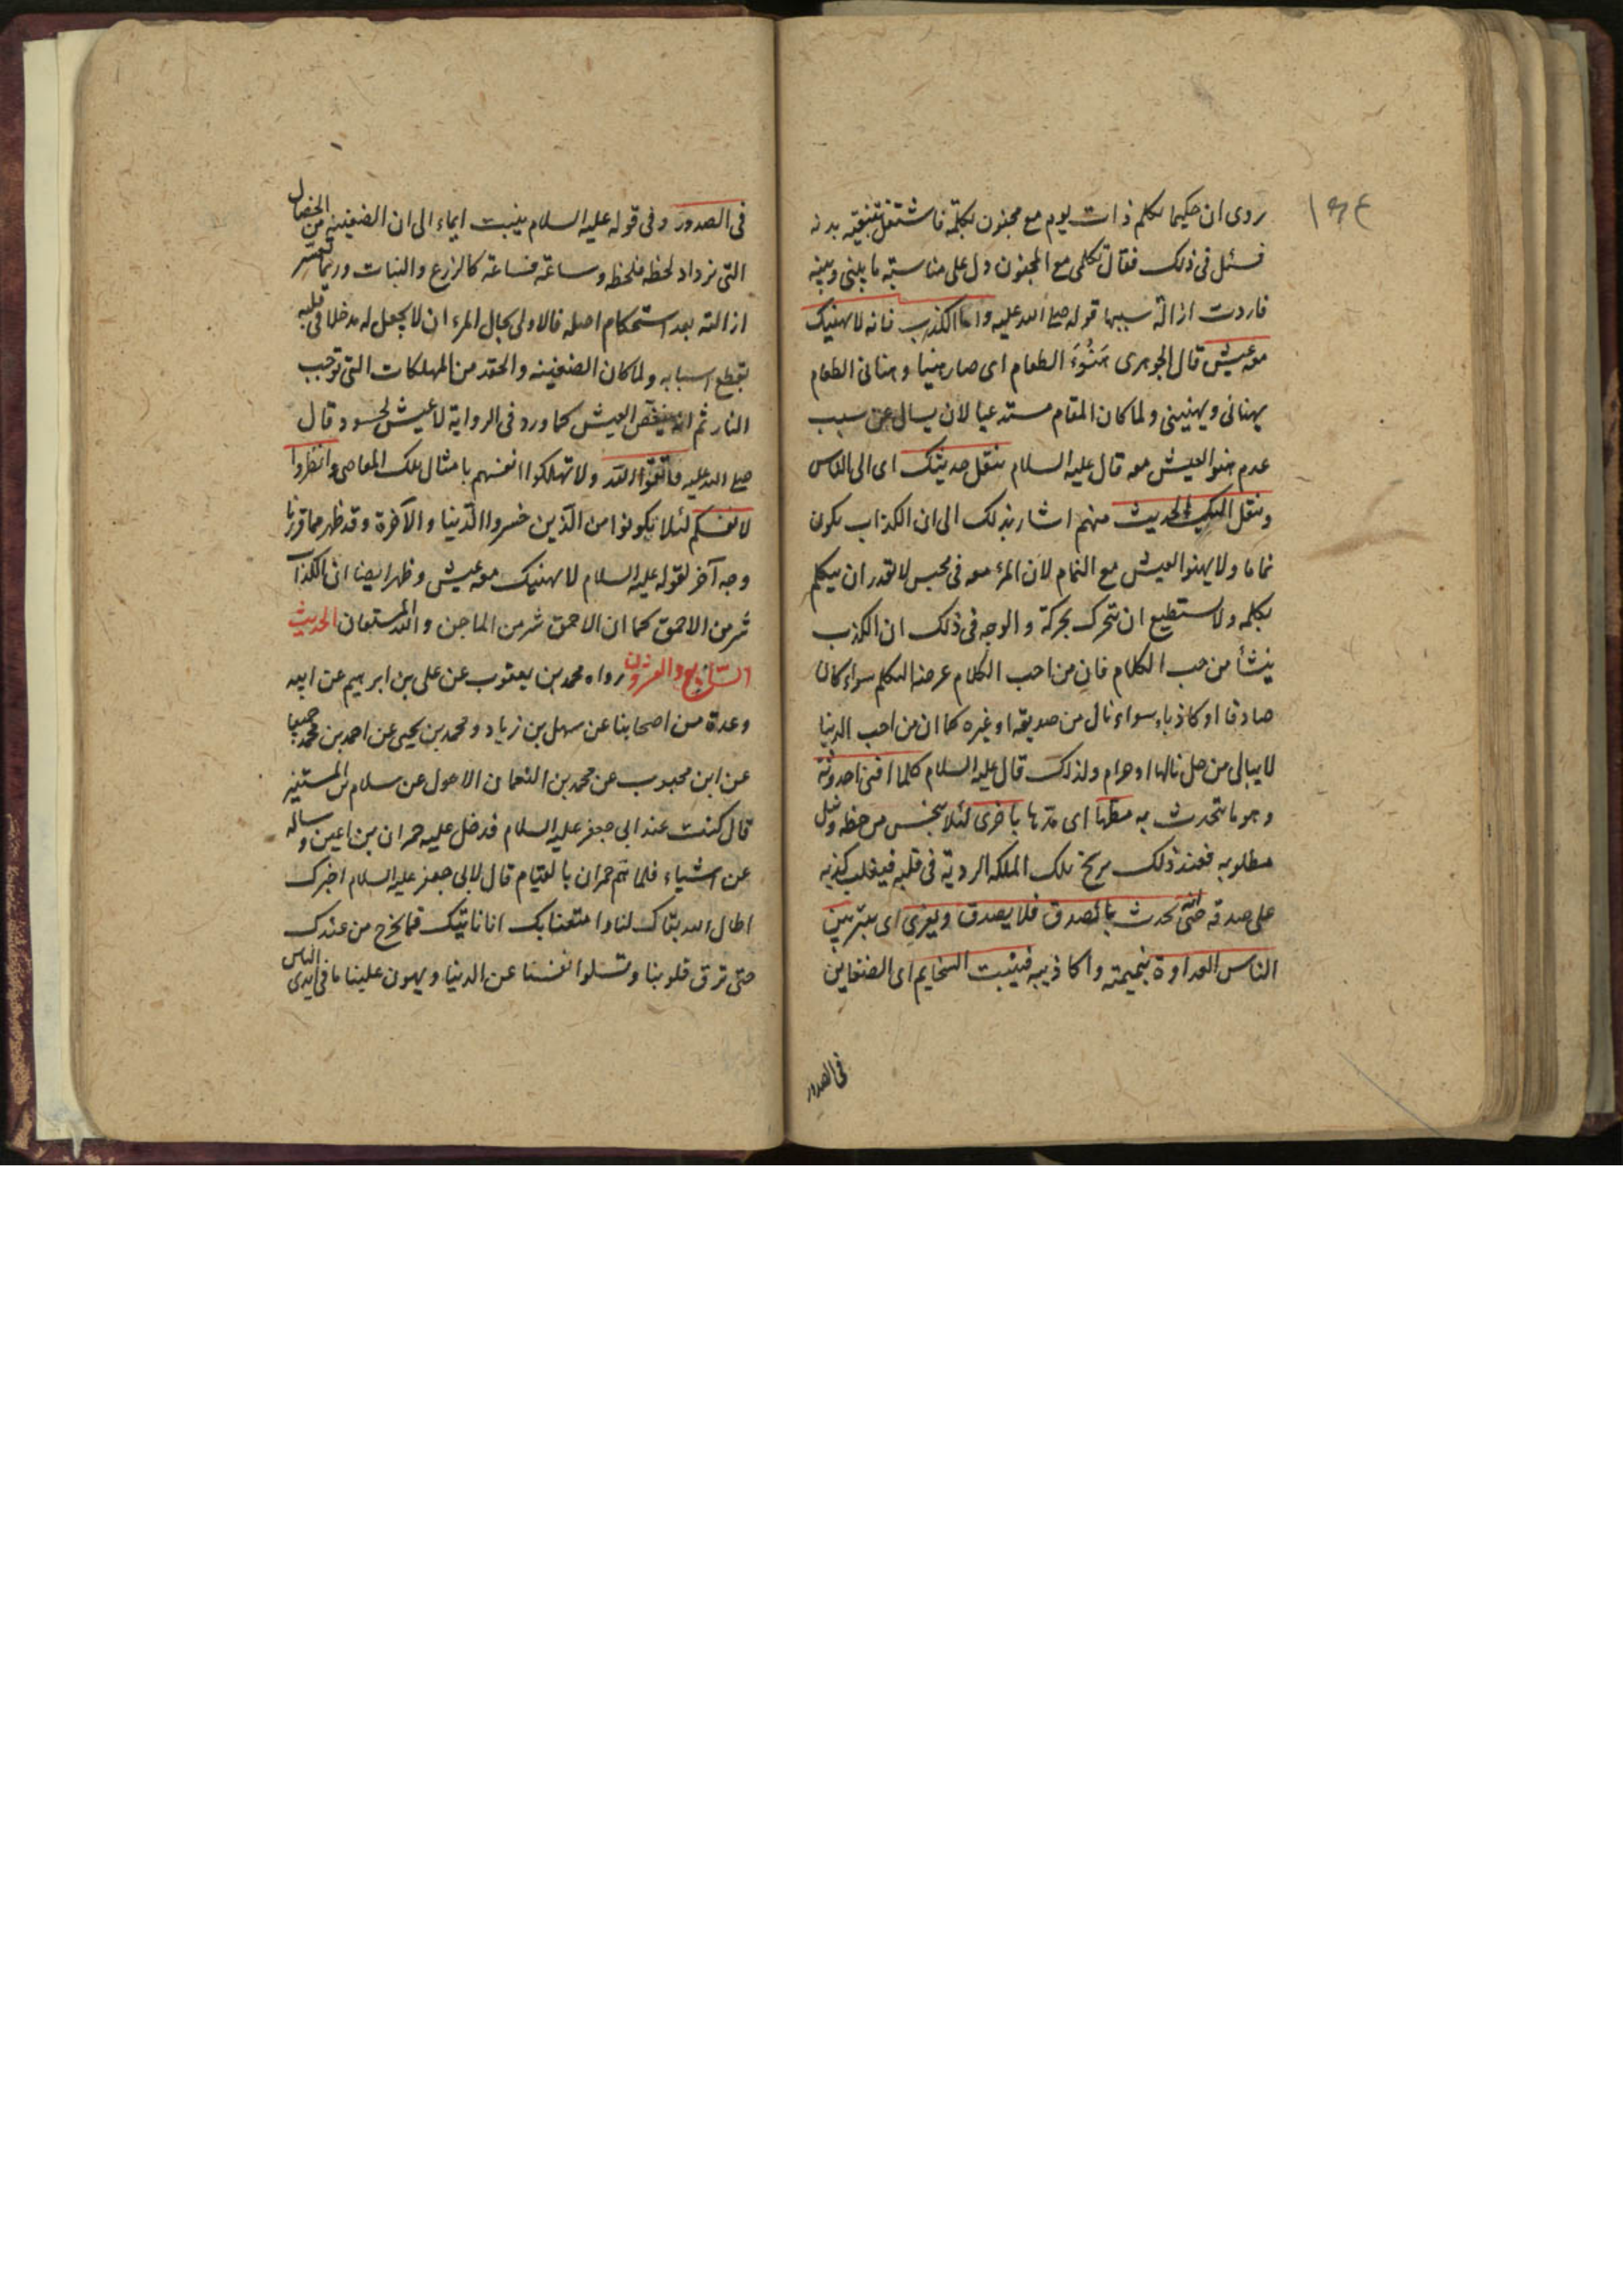 روى ان حكيما تكلم ذات يوم مع مجنون بكلمة فاشتغل بتنقية بدنه
فسئل فى ذلك فقال تكلمى مع المجنون دل على مناسبة ما بينى وبينه
فاردت ازالة سببها قوله صلى الله عليه واما الكذاب فانه لا يهنيك
معه عيش قال الجوهرى هَنُوَءَ الطعام اى صار هنيا وهنانى الطعام
يهنانى ويهنينى ولما كان المقام مستدعيا لان يسال عن سبب
عدم هنو العيش معه قال عليه السلام ينقل حديثك اى الى الناس
وينقل اليك الحديث منهم اشار بذلك الى ان الكذاب يكون
نماما ولا يهنو العيش مع النمام لان المرء معه فى محبس لا يقدر ان يتكلم
بكلمه ولا يستطيع ان يتحرك بحركة والوجه فى ذلك ان الكذب
ينشأ من حب الكلام فان من احب الكلام غرضه التكلم سواء كان
صادقا او كاذبا سواء نال من صديقه او غيره كما ان من احب الدنيا
لا يبالى من حل نالها او حرام ولذلك قال عليه السلام كلما افنى احدوثة
وهو ما يتحدث به مطها اى مدها باخرى لئلا يبخس من حظه ونيل
مطلوبه فعند ذلك يرسخ تلك الملكه الردية فى قلبه فيغلب كذبه
على صدقه حتى انه يحدث بالصدق فلا يصدق ويغرى اى بين
الناس العداوة بنميمته واكاذيبه فينبت السخايم اى الضغاين
فى الصدور
فى الصدور وفى قوله عليه السلام ينبت ايماء الى ان الضغينه من الخصال
التى تزداد لحظه فلحظه وساعة فساعة كالزرع والنبات وربما تعسر
ازالته بعد استحكام اصله فالاولى بحال المرء ان لا يجعل له مدخلا فى قلبه
بقطع اسبابه ولما كان الضغينه والحقد من المهلكات التى توجب
النار ثم انه ينغص العيش كما ورد فى الرواية لا عيش لحسود قال
صلى الله عليه فاتقوا الله ولا تهلكوا انفسهم بامثال تلك المعاصى وانظروا
لانفسكم لئلا تكونوا من الذين خسروا الدنيا والآخرة وقد ظهر مما قررنا
وجه آخر لقوله عليه السلام لا يهنيك معه عيش وظهر ايضا ان الكذاب
شر من الاحمق كما ان الاحمق شر من الماجن والله المستعان الحديث
السابع والعشرون رواه محمد بن يعقوب عن على بن ابرهيم عن ابيه
وعدة من اصحابنا عن سهل بن زياد ومحمد بن يحيى عن احمد بن محمد جميعا
عن ابن محبوب عن محمد بن النعمان الاحول عن سلام بن المستنير
قال كنت عند ابى جعفر عليه السلام فدخل عليه حمران بن اعين وساله
عن اشياء فلما هم حمران بالقيام قال لابى جعفر عليه السلام اخبرك
اطال الله بقاك لنا وامتعنا بك انا ناتيك فما نخرج من عندك
حتى ترق قلوبنا وتسلوا انفسنا عن الدنيا ويهون علينا ما فى ايدى الناس